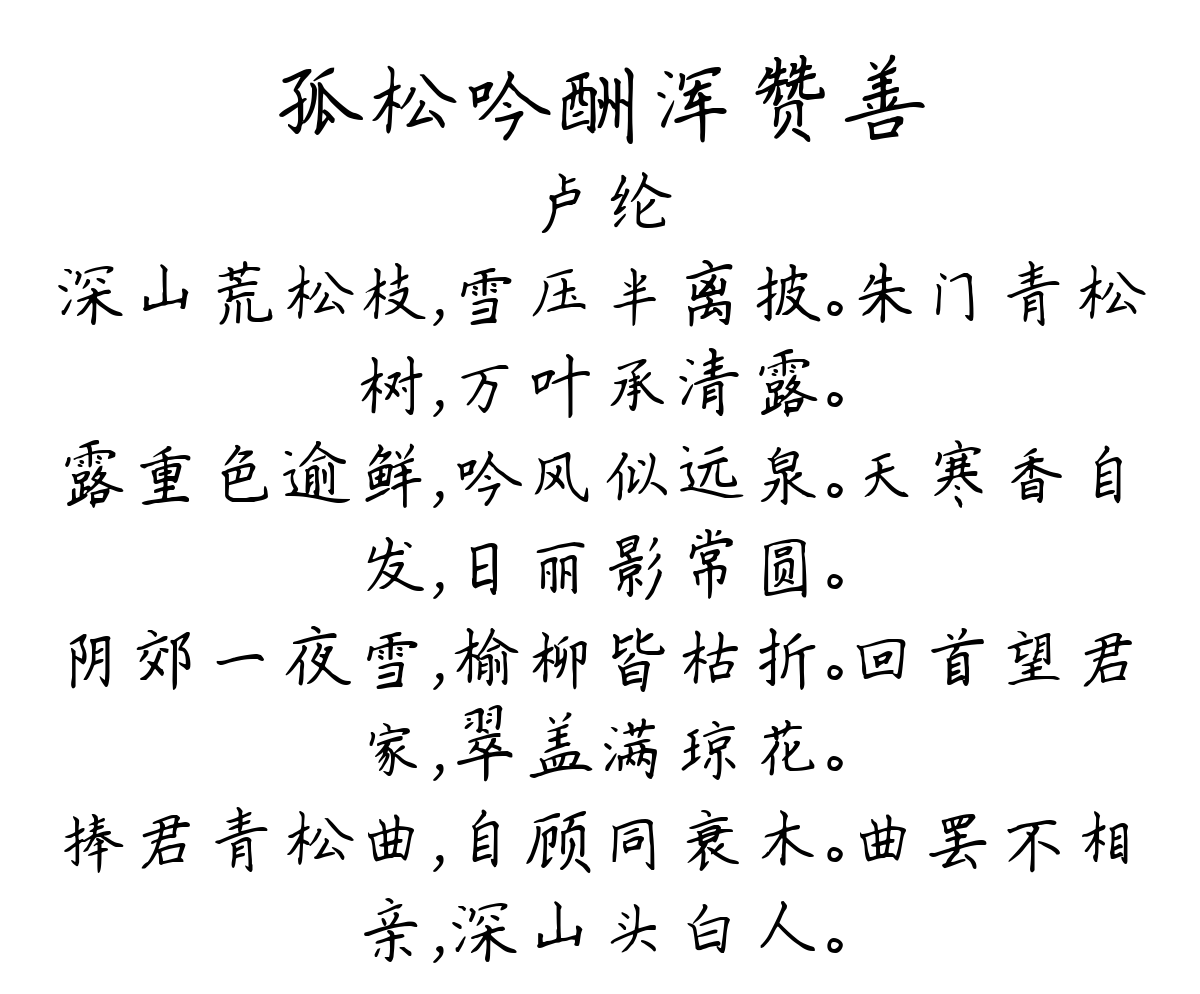 孤松吟酬浑赞善
卢纶
深山荒松枝,雪压半离披。朱门青松
树,万叶承清露。
露重色逾鲜,吟风似远泉。天寒香自
发,日丽影常圆。
阴郊一夜雪,榆柳皆枯折。回首望君
家,翠盖满琼花。
捧君青松曲,自顾同衰木。曲罢不相
亲,深山头白人。